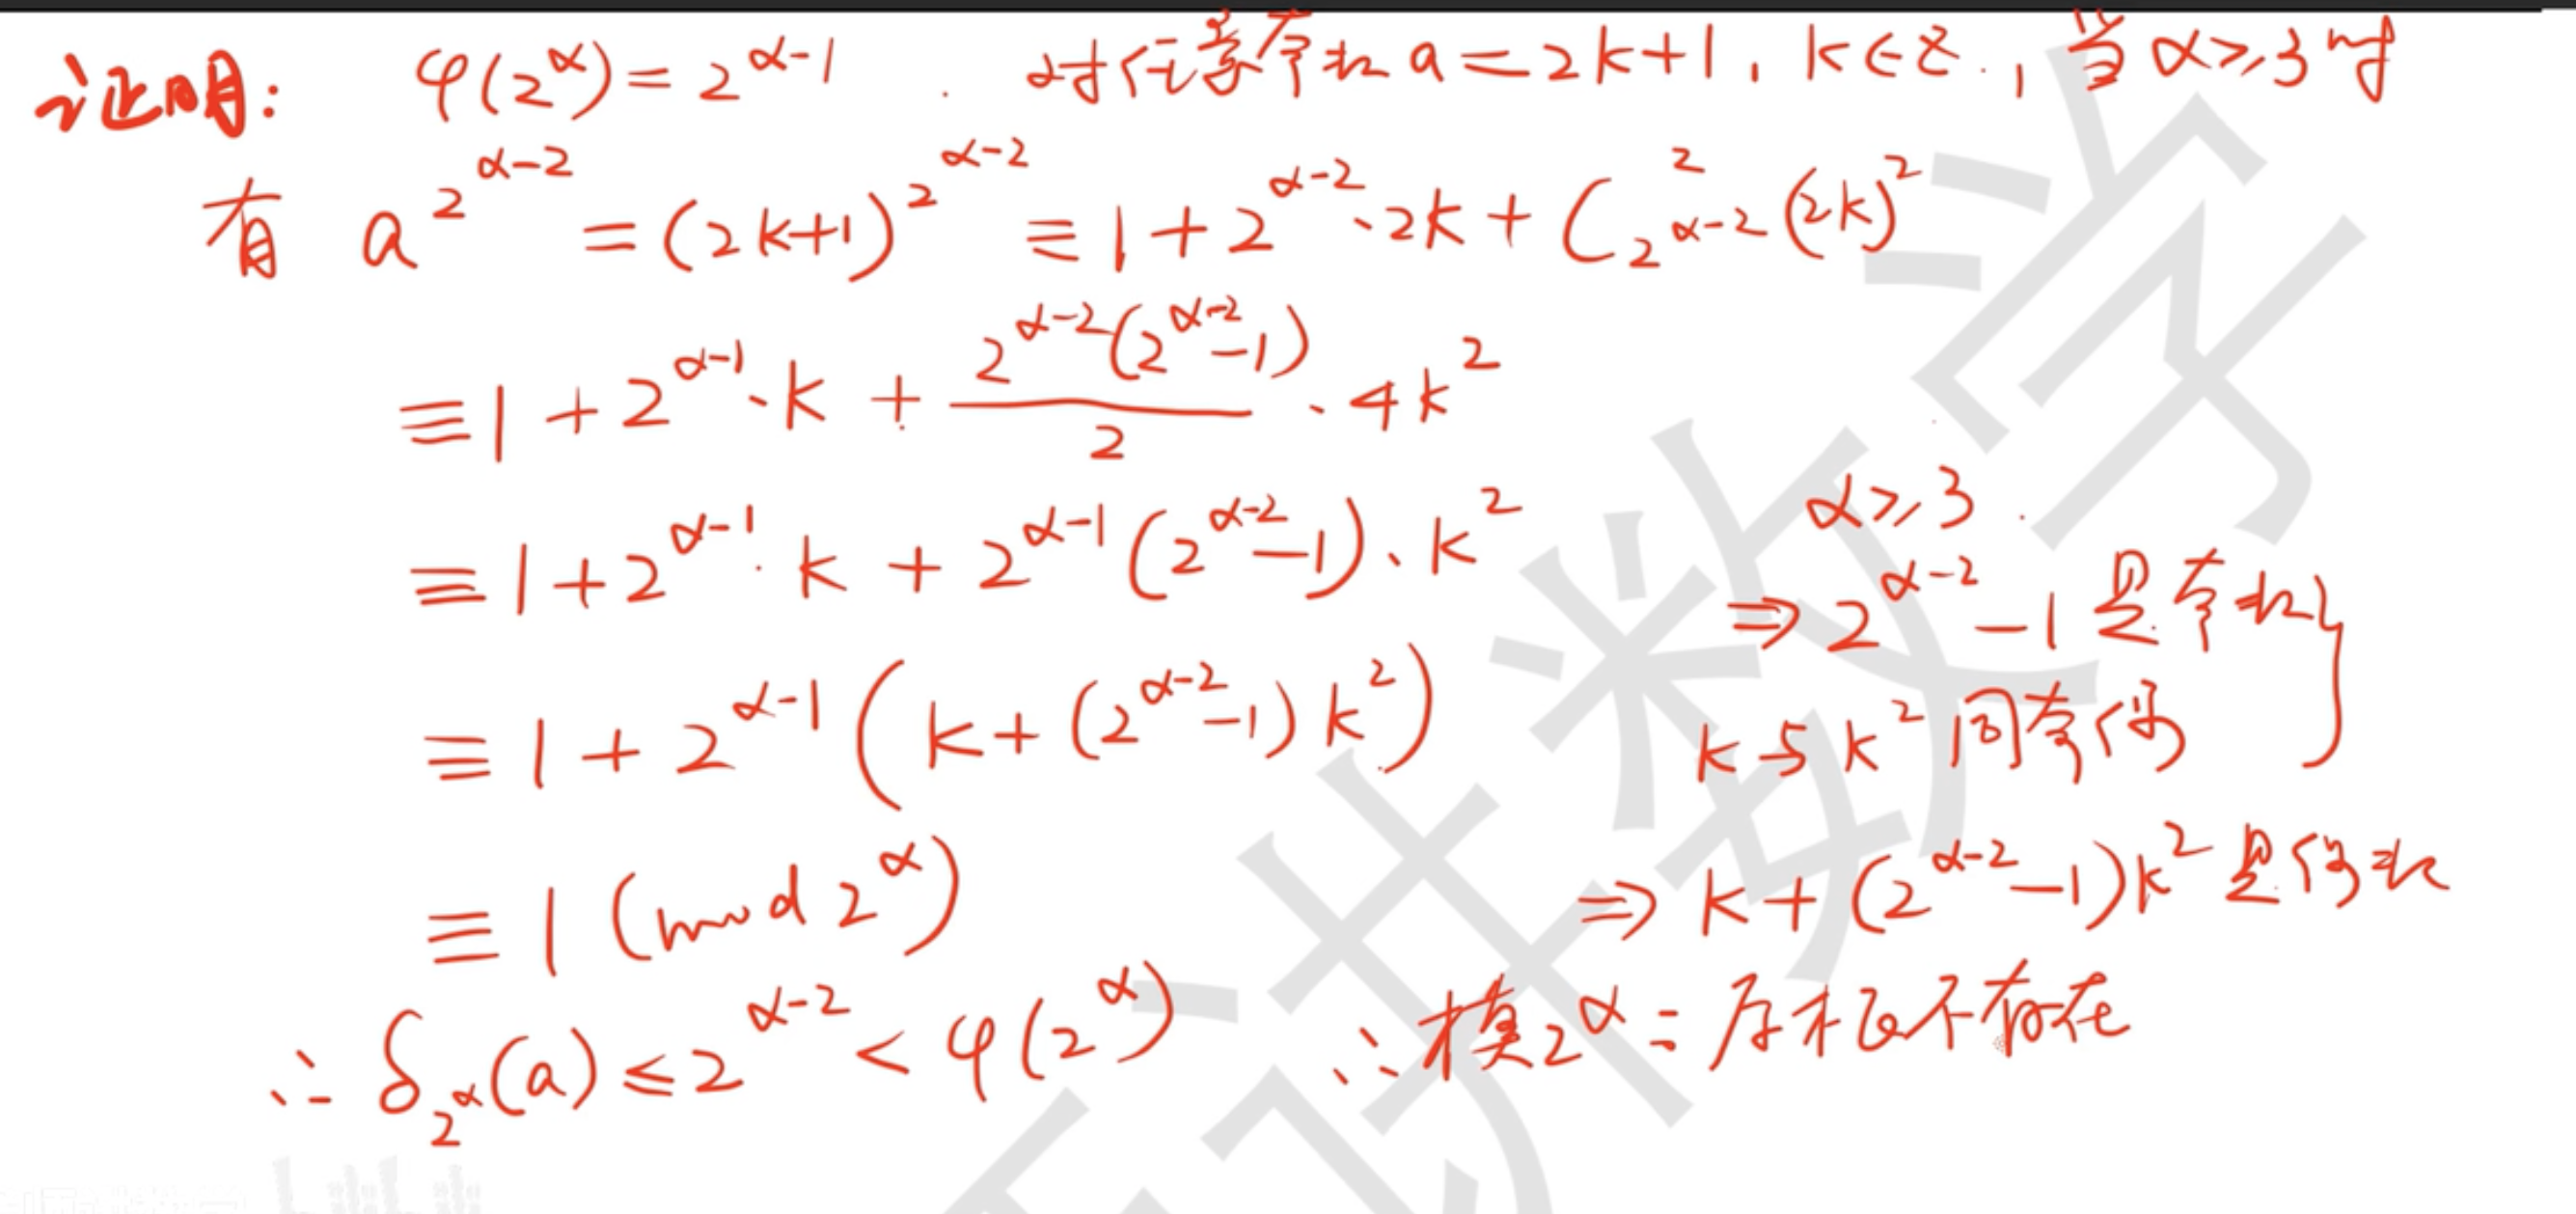 证明: φ(2^α)=2^(α-1). 对任意奇数a=2k+1, k∈Z, 当α≥3时
有 a^(2^(α-2)) = (2k+1)^(2^(α-2)) ≡ 1+2^(α-2)·2k+C_(2^(α-2))^2 (2k)^2
≡ 1+2^(α-1)·k + 2^(α-2)(2^(α-2)-1)/2 · 4k^2
≡ 1+2^(α-1)·k + 2^(α-1)(2^(α-2)-1)·k^2
≡ 1+2^(α-1)(k+(2^(α-2)-1)k^2)
≡ 1 (mod 2^α)
∴ δ_(2^α)(a) ≤ 2^(α-2) < φ(2^α)
α≥3.
⇒ 2^(α-2)-1是奇数
k与k^2同奇偶 }
⇒ k+(2^(α-2)-1)k^2是偶数
∴模2^α=原根不存在
讲数学